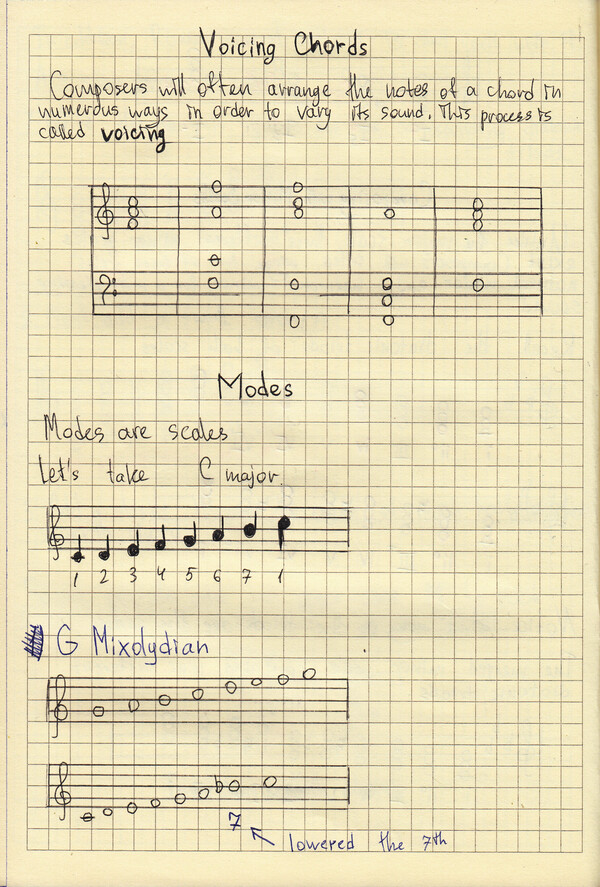 Voicing Chords
Composers will often arrange the notes of a chord in
numerous ways in order to vary its sound. This process is
called voicing
Modes
Modes are scales
Let's take C major.
1 2 3 4 5 6 7 1
G Mixolydian
7
lowered the 7th